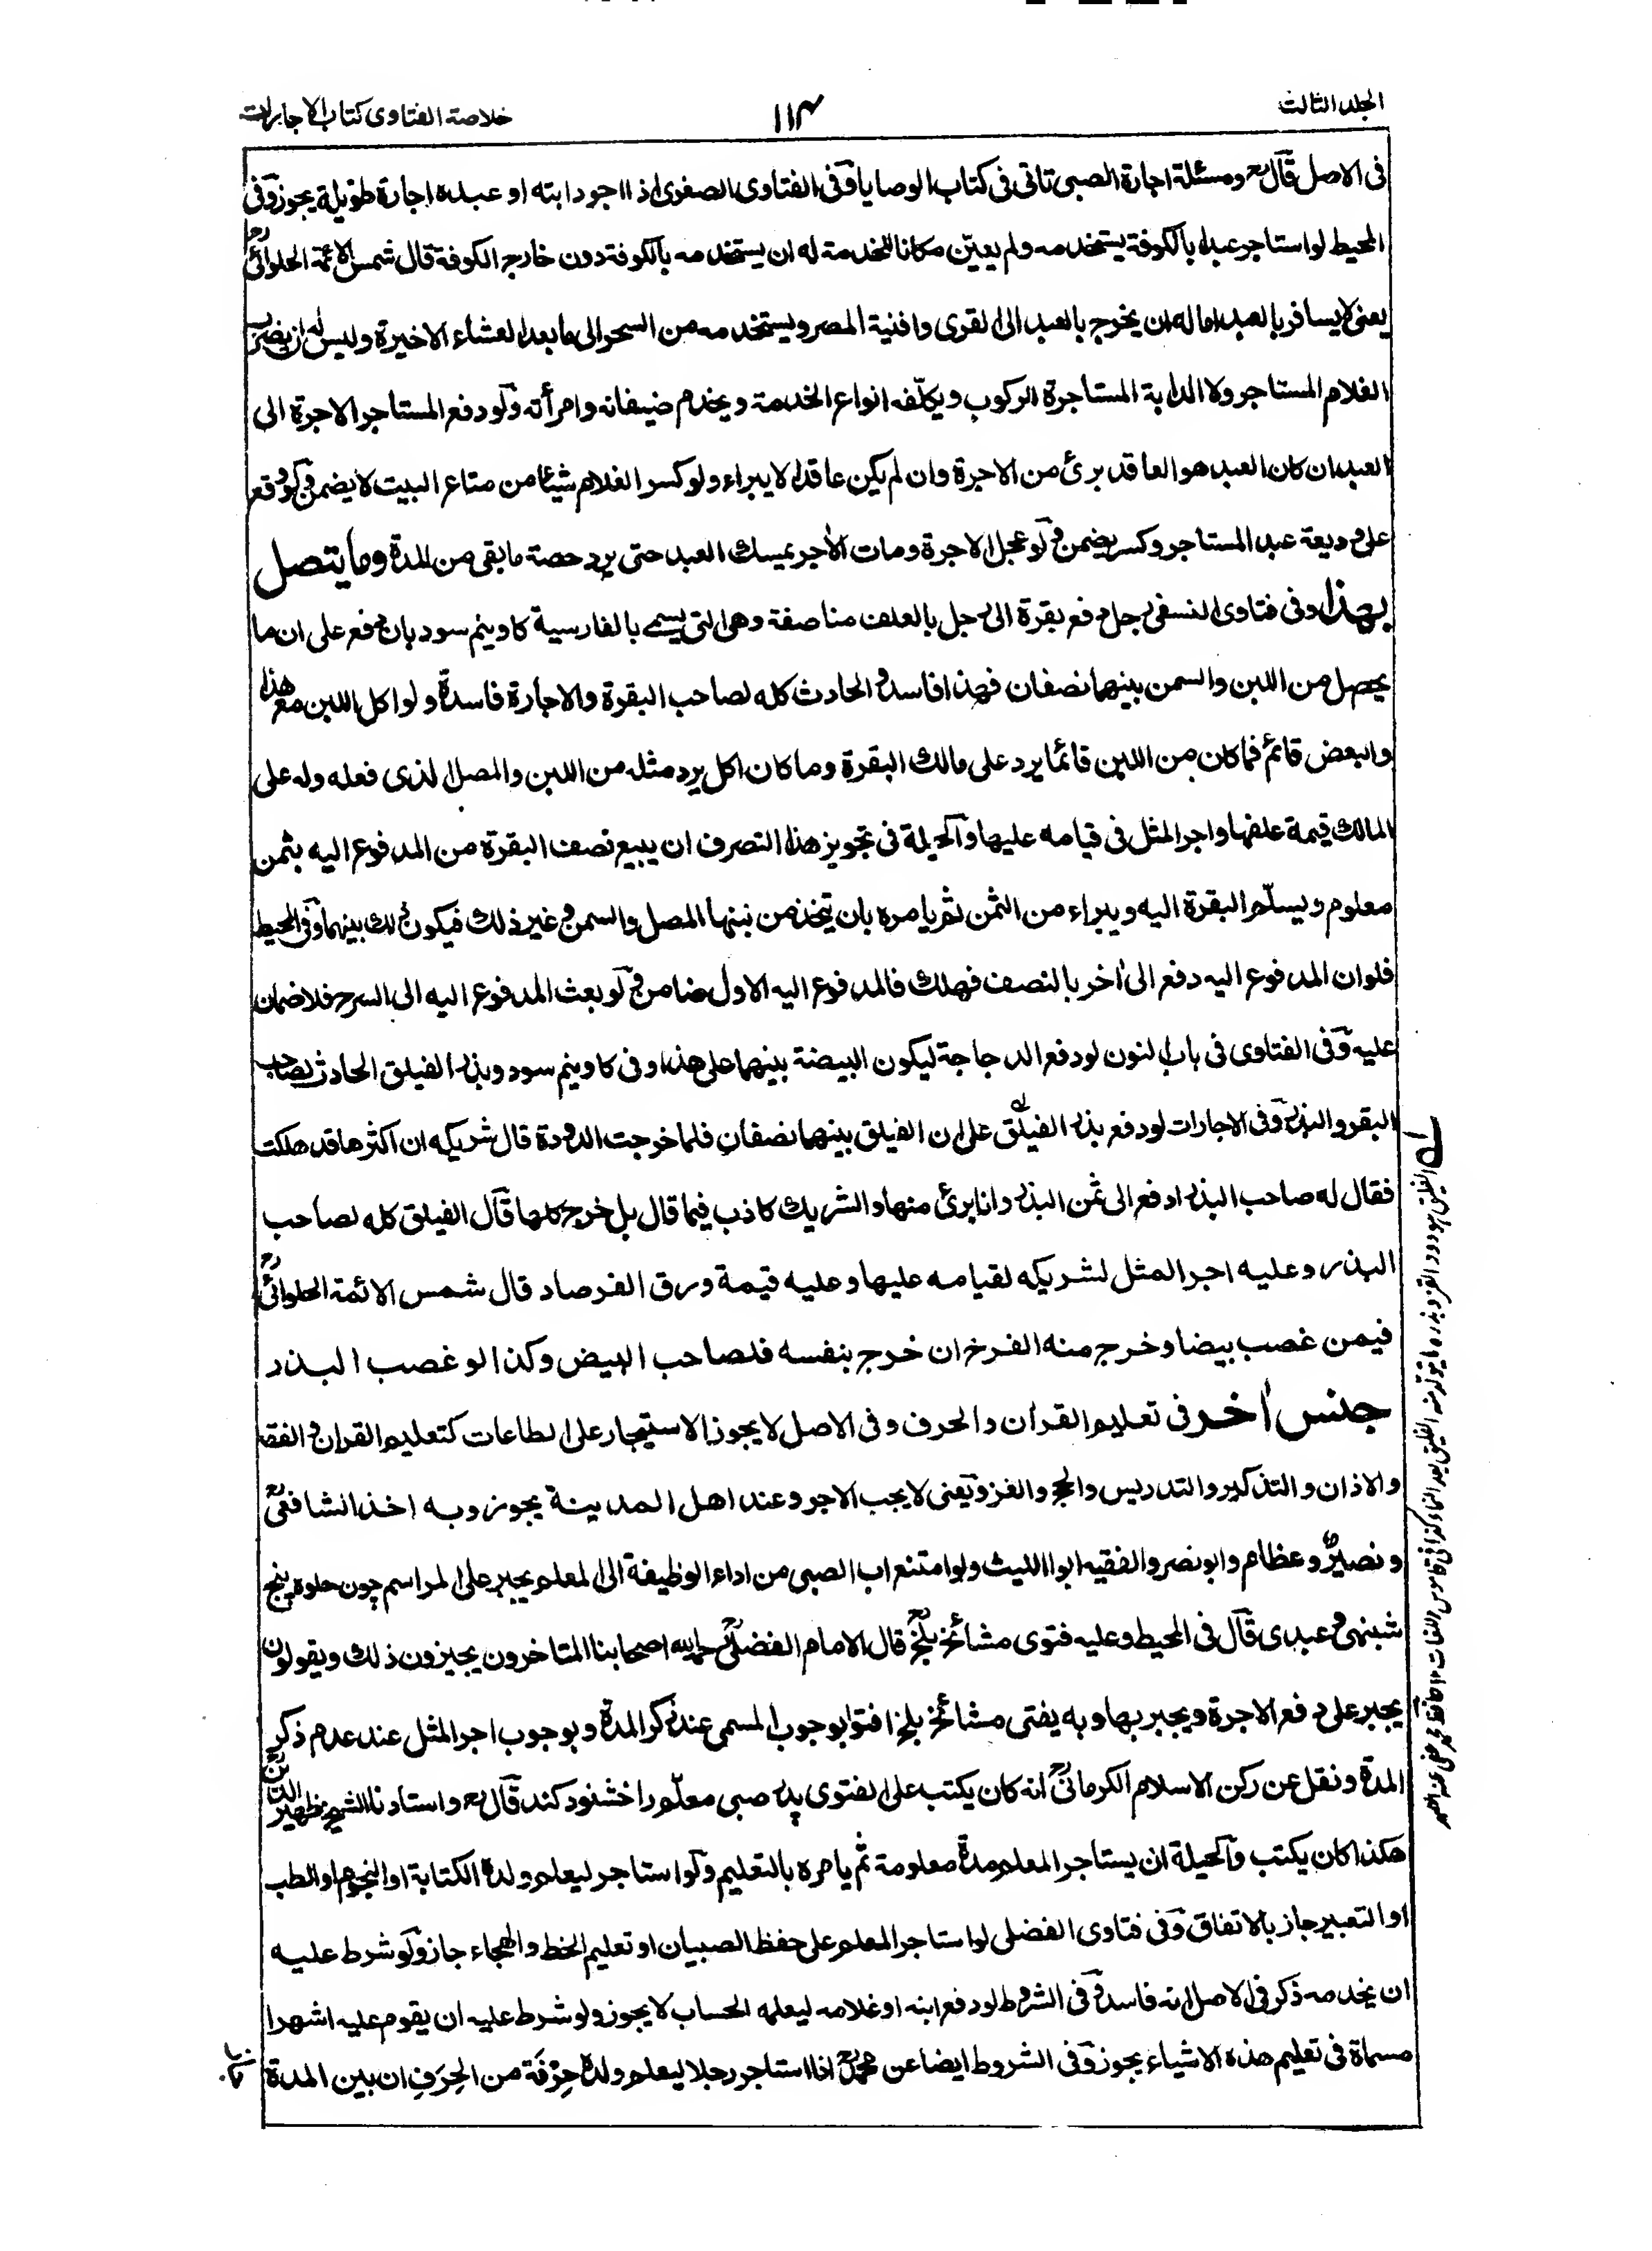 الجلد الثالث
١١٤
خلاصة الفتاوى كتاب الاجارات
فى الاصل قال رح ومسئلة اجارة الصبى تاتى فى كتاب الوصايا وفى الفتاوى الصغرى اذا اجر دابته او عبده اجارة طويلة يجوز وفى
المحيط لو استاجر عبدا بالكوفة يستخدمه ولم يعيّن مكانا للخدمة له ان يستخدمه بالكوفة دون خارج الكوفة قال شمس الائمة الحلوائى رح
يعنى لا يسافر بالعبد اما له ان يخرج بالعبد الى القرى وافنية المصر ويستخدمه من السحر الى ما بعد العشاء الاخيرة وليس له ان يضرب
الغلام المستاجر ولا الدابة المستاجرة الركوب ويكلّفه انواع الخدمة ويخدم ضيفانه وامرأته ولو دفع المستاجر الاجرة الى
العبد ان كان العبد هو العاقد برئ من الاجرة وان لم يكن عاقدا لا يبراء ولو كسر الغلام شيئا من متاع البيت لا يضمن ولو وقع
على وديعة عبد المستاجر وكسر يضمن ولو عجل الاجرة ومات الآجر يمسك العبد حتى يرد حصة ما بقى من المدة وما يتصل
بهذا وفى فتاوى النسفى رجل دفع بقرة الى رجل بالعلف مناصفة وهى التى يسمى بالفارسية كاونيم سود بان دفع على ان ما
يحصل من اللبن والسمن بينهما نصفان فهذا فاسد والحادث كله لصاحب البقرة والاجارة فاسدة ولو اكل اللبن مع هذا
والبعض قائم فما كان من اللبن قائما يرد على مالك البقرة وما كان اكل يرد مثله من اللبن والمصل الذى فعله وله على
المالك قيمة علفها واجر المثل فى قيامه عليها والحيلة فى تجويز هذا التصرف ان يبيع نصف البقرة من المدفوع اليه بثمن
معلوم ويسلّم البقرة اليه ويبراء من الثمن ثم يامره بان يتخذ من لبنها المصل والسمن وغير ذلك فيكون ذلك بينهما وفى المحيط
فلو ان المدفوع اليه دفع الى اٰخر بالنصف فهلك فالمدفوع اليه الاول ضامن ولو بعث المدفوع اليه الى السرح فلا ضمان
عليه وفى الفتاوى فى باب النون لو دفع الدجاجة ليكون البيضة بينهما على هذا وفى كاونيم سود وبذر الفيلق الحادث لصاحب
البقر والبذر وفى الاجارات لو دفع بذر الفيلق على ان الفيلق بينهما نصفان فلما خرجت الدودة قال شريكه ان اكثرها قد هلكت
فقال له صاحب البذر ادفع الى ثمن البذر وانا برئ منها والشريك كاذب فيما قال بل خرج كلها قال الفيلق كله لصاحب
البذر وعليه اجر المثل لشريكه لقيامه عليها وعليه قيمة ورق الفرصاد قال شمس الائمة الحلوائى رح
فيمن غصب بيضا وخرج منه الفرخ ان خرج بنفسه فلصاحب البيض وكذا لو غصب البذر
جنس اٰخر فى تعليم القران والحرف وفى الاصل لا يجوز الاستيجار على الطاعات كتعليم القران والفقه
والاذان والتذكير والتدريس والحج والغزو يعنى لا يجب الاجر وعند اهل المدينة يجوز وبه اخذ الشافعى رح
ونصير وعظام وابو نصر والفقيه ابو الليث ولو امتنع اب الصبى من اداء الوظيفة الى المعلم يجبر على المراسم چون حلوه پنج
شبنهى وعيدى قال فى المحيط وعليه فتوى مشائخ بلخ قال الامام الفضلى رحمه الله اصحابنا المتاخرون يجيزون ذلك ويقولون
يجبر على دفع الاجرة ويجبر بها وبه يفتى مشائخ بلخ افتوا بوجوب المسمى عند ذكر المدة وبوجوب اجر المثل عند عدم ذكر
المدة ونقل عن ركن الاسلام الكرمانى رح انه كان يكتب على الفتوى پدر صبى معلّم را خشنود كند قال رح واستاذنا الشيخ ظهير الدين رح
هكذا كان يكتب والحيلة ان يستاجر المعلم مدة معلومة ثم يامره بالتعليم ولو استاجر ليعلم ولده الكتابة او النجوم او الطب
او التعبير جاز بالاتفاق وفى فتاوى الفضلى لو استاجر المعلم على حفظ الصبيان او تعليم الخط والهجاء جاز ولو شرط عليه
ان يخدمه ذكر فى الاصل انه فاسد وفى الشروط لو دفع ابنه او غلامه ليعلمه الحساب لا يجوز ولو شرط عليه ان يقوم عليه اشهرا
مسماة فى تعليم هذه الاشياء يجوز وفى الشروط ايضا عن محمد رح اذا استاجر رجلا ليعلم ولده حِرْفَة من الحِرَفِ ان بين المدة
الفليق هو دود القز وبذره ما يتولد منه الفليق بعد النماء كذا فى قاموس اللغات ١٢